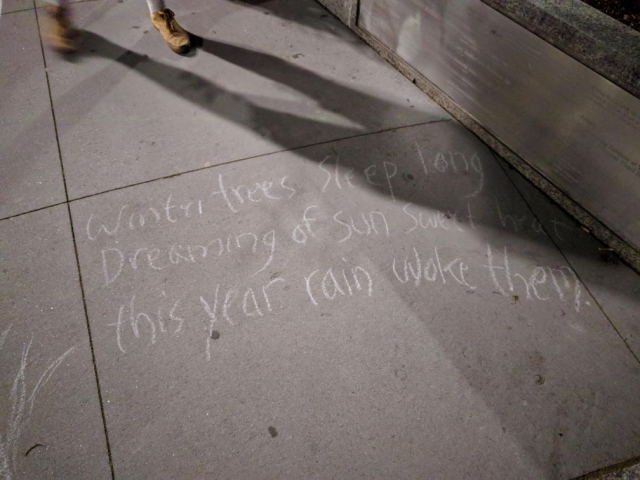 Winter trees Sleep long
Dreaming of sun sweet heat
this year rain woke them.